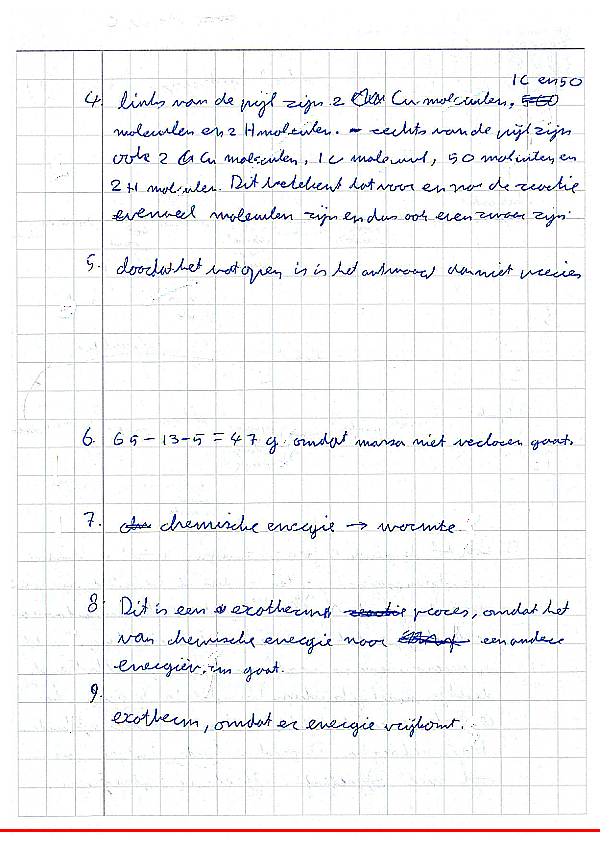 1C en 5O
4. links van de pijl zijn 2 Cu moleculen,
moleculen en 2 H moleculen. rechts van de pijl zijn
ook 2 Cu moleculen, 1 C molecuul, 5O moleculen en
2 H moleculen. Dit betekent dat voor en na de reactie
evenveel moleculen zijn en dus ook even zwaar zijn.
5. doordat het vat open is is het antwoord dan niet precies
6. 65 - 13 - 5 = 47 g. omdat massa niet verloren gaat.
7. chemische energie → warmte
8. Dit is een exotherm proces, omdat het
van chemische energie naar een andere
energievorm gaat.
9.
exotherm, omdat er energie vrijkomt.